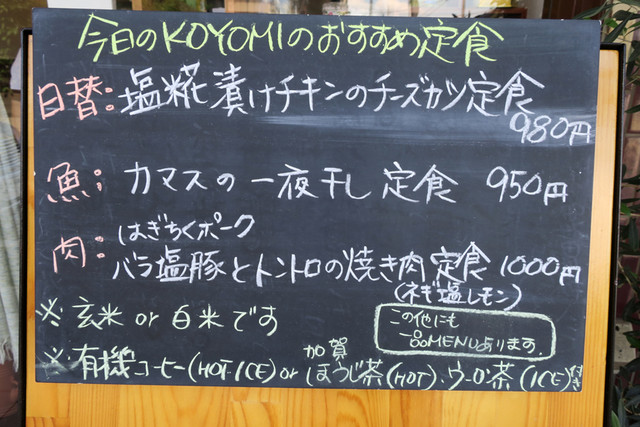 今日のKOYOMIのおすすめ定食
日替:塩糀漬けチキンのチーズカツ定食
980円
魚:カマスの一夜干し定食 950円
肉:はぎちくポーク
バラ塩豚とトントロの焼き肉定食 1000円
(ネギ塩レモン)
※玄米or白米です
この他にも
一品MENUあります.
※有機コーヒー(HOT・ICE)or加賀ほうじ茶(HOT)、ウーロン茶(ICE)付き